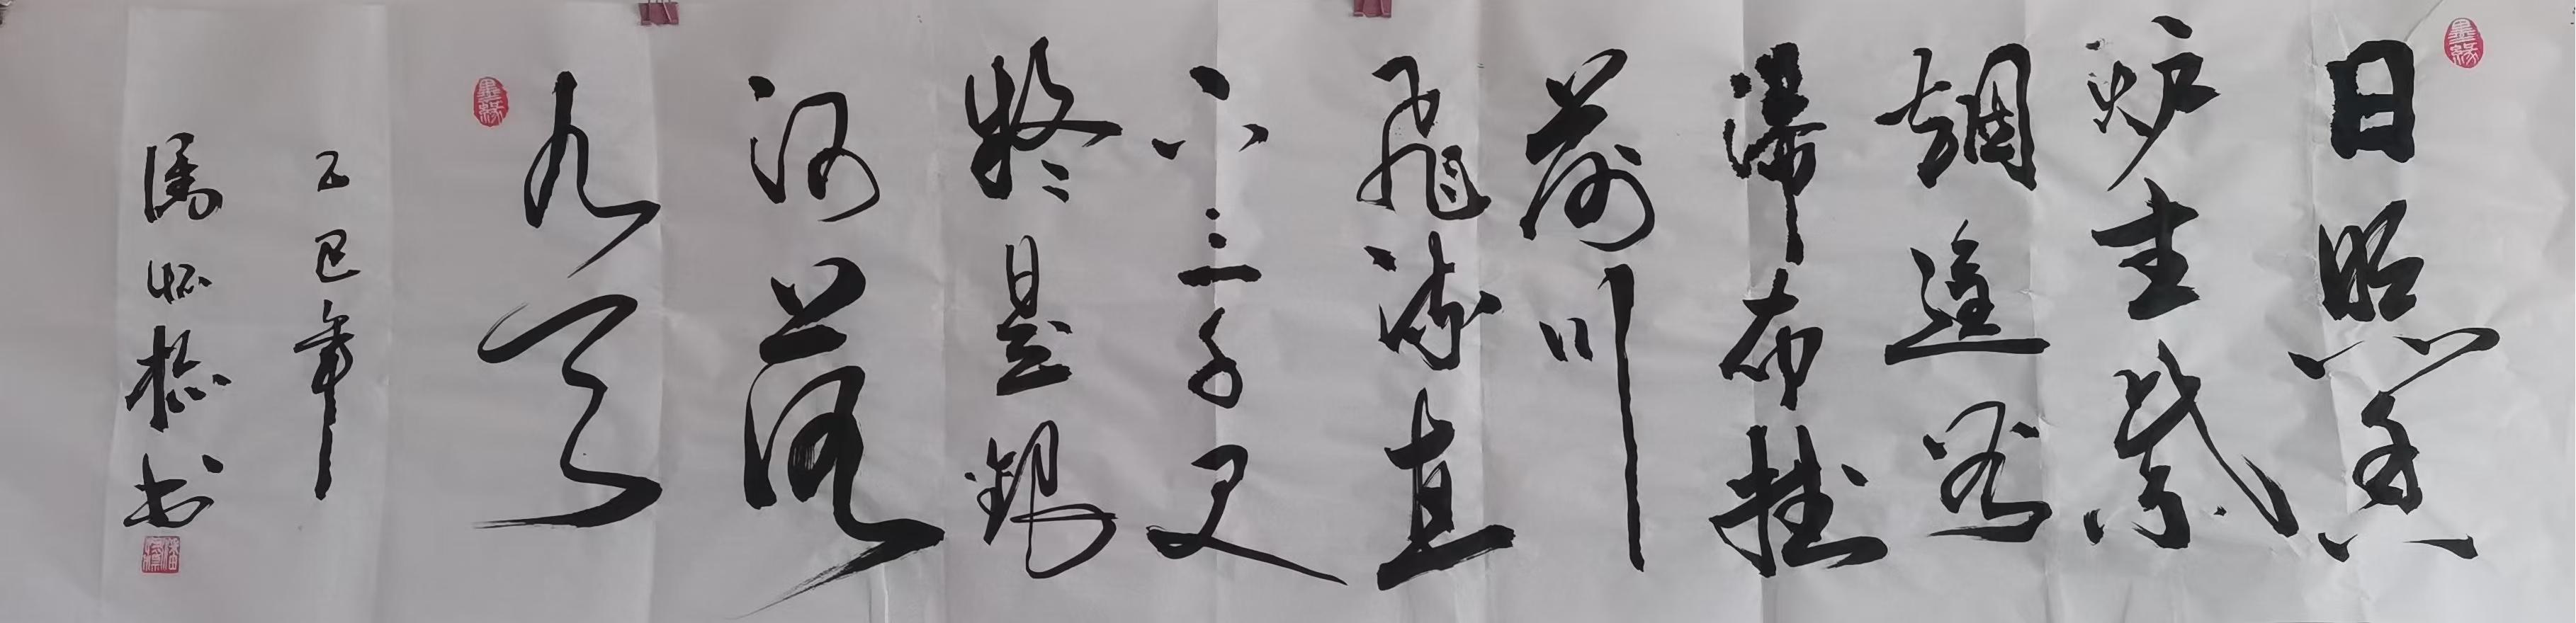 墨緣
日照香
炉生紫
烟遥看
瀑布挂
前川
飛流直
下三千尺
疑是銀
河落
九天
墨緣
乙巳年
书